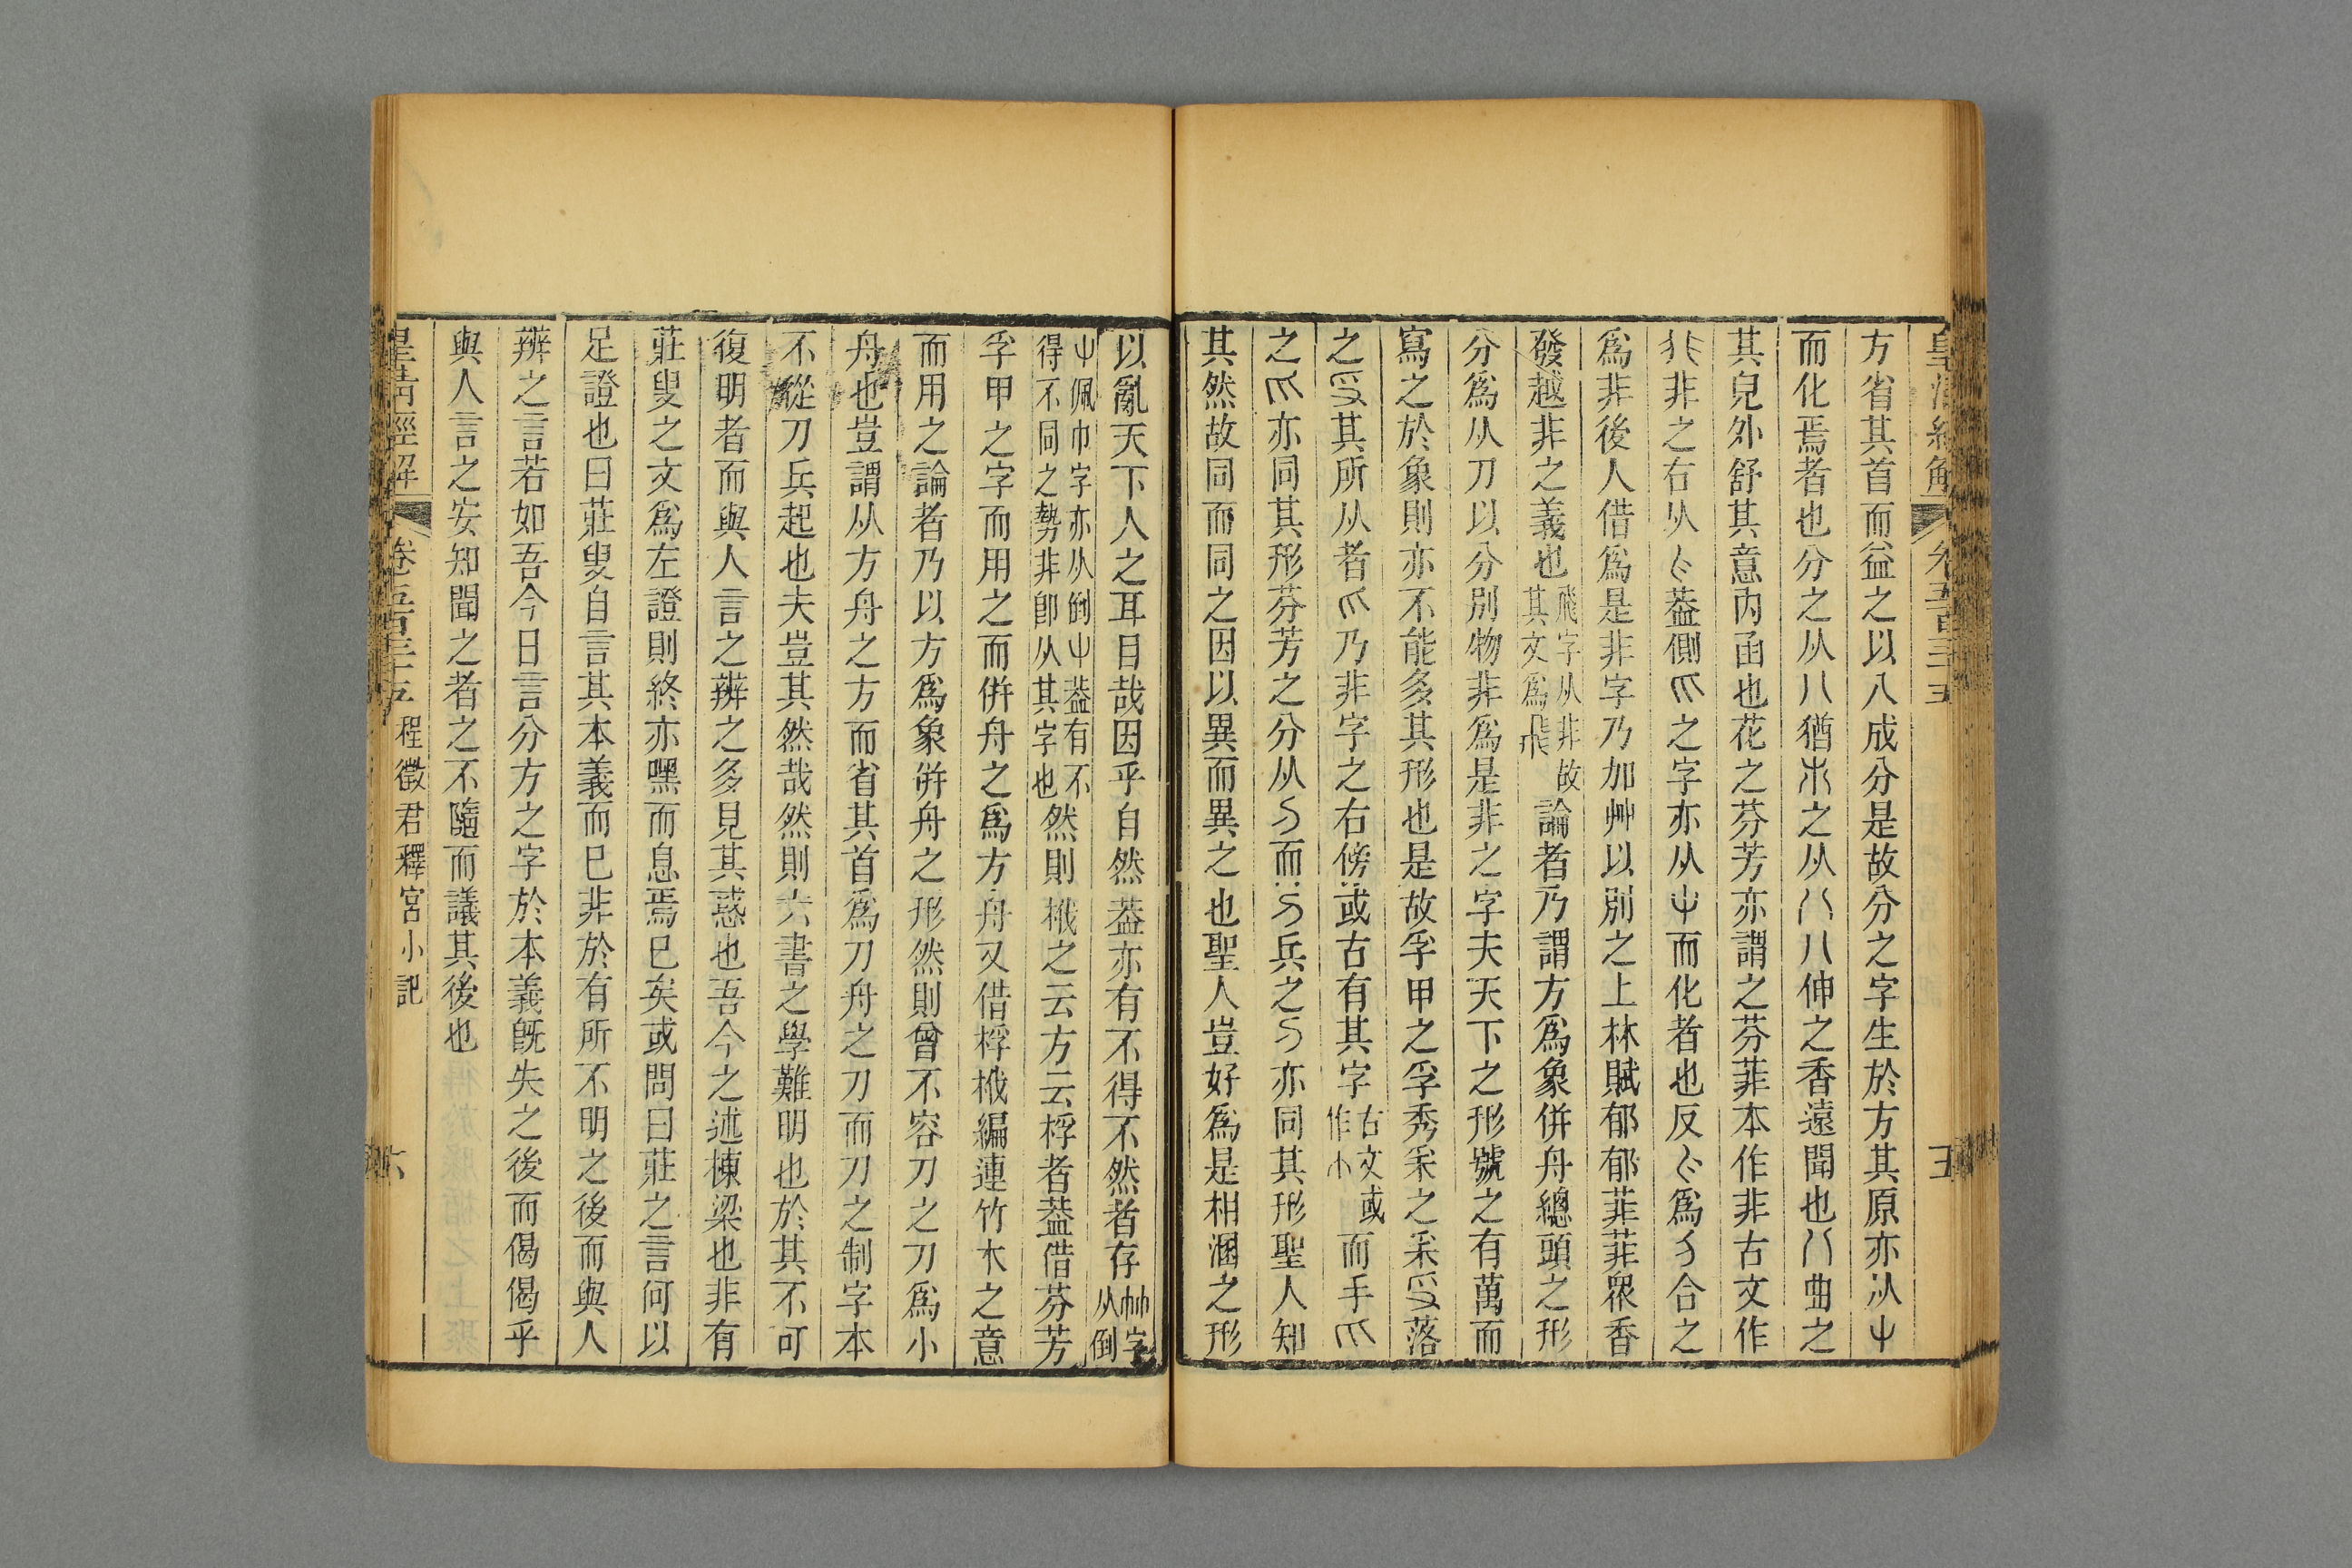 皇清經解 卷五百三十五 五
方省其首而益之以八成分是故分之字生於方其原亦从屮
而化焉者也分之从八猶朩之从八八伸之香遠聞也八曲之
其皃外舒其意內函也花之芬芳亦謂之芬菲本作非古文作
非之右从蓋側之字亦从屮而化者也反為合之
為非後人借為是非字乃加艸以別之上林賦郁郁菲菲衆香
發越非之義也飛字从非故其文為飛論者乃謂方為象併舟總頭之形
分為从刀以分別物非為是非之字夫天下之形號之有萬而
寫之於象則亦不能多其形也是故孚甲之孚秀采之采𠬪落
之𠬪其所从者爪乃非字之右傍或古有其字古文或作而手爪
之爪亦同其形芬芳之分从丂而丂兵之丂亦同其形聖人知
其然故同而同之因以異而異之也聖人豈好為是相溷之形
以亂天下人之耳目哉因乎自然蓋亦有不得不然者存帥字从倒
屮佩巾字亦从倒屮蓋有不得不同之勢非卽从其字也然則橃之云方云桴者蓋借芬芳
孚甲之字而用之而併舟之為方舟又借桴橃編連竹木之意
而用之論者乃以方為象併舟之形然則曾不容刀之刀為小
舟也豈謂从方舟之方而省其首為刀舟之刀而刀之制字本
不從刀兵起也夫豈其然哉然則六書之學難明也於其不可
復明者而與人言之辨之多見其惑也吾今之述棟梁也非有
莊叟之文為左證則終亦嘿而息焉已矣或問曰莊之言何以
足證也曰莊叟自言其本義而已非於有所不明之後而與人
辨之言若如吾今日言分方之字於本義旣失之後而偈偈乎
與人言之安知聞之者之不隨而議其後也
皇清經解 卷五百三十五 程徵君釋宮小記 六